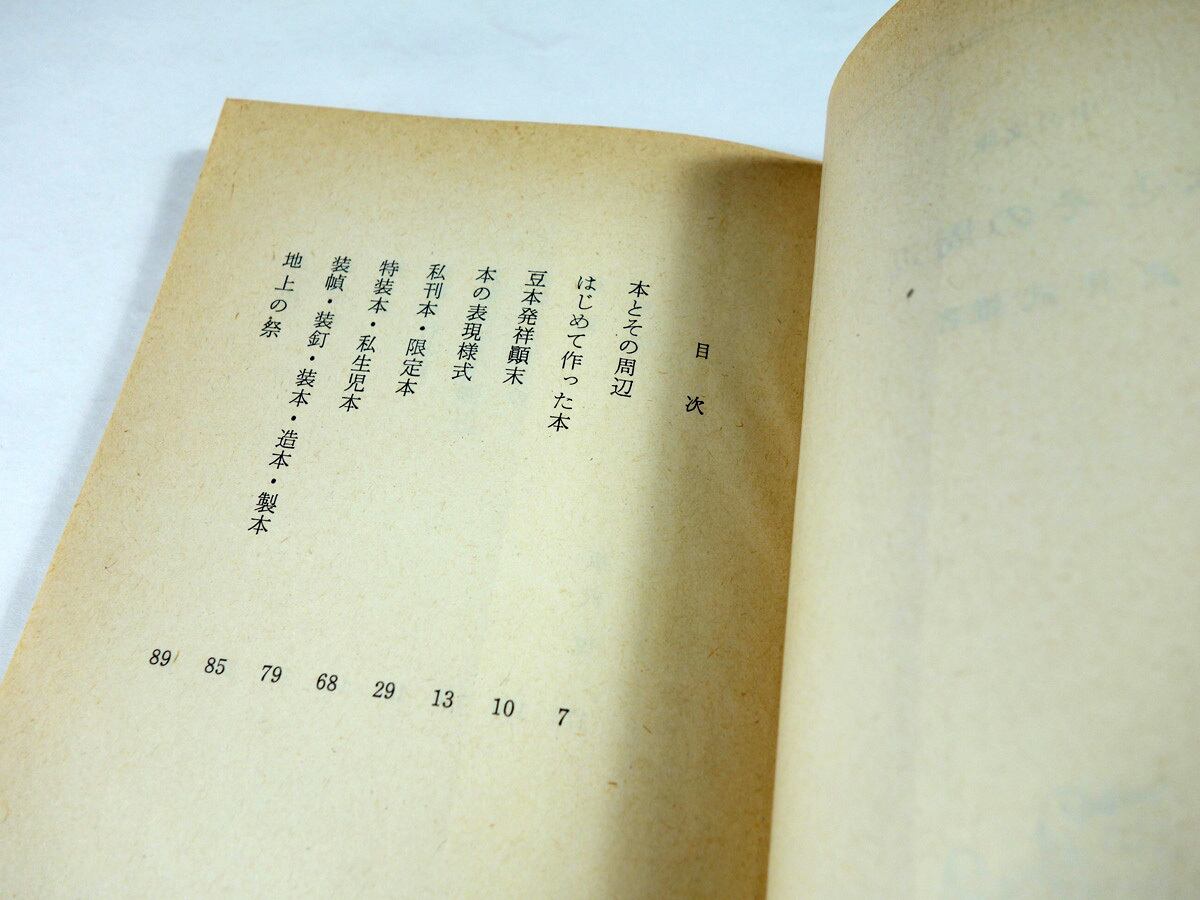 目次
本とその周辺
はじめて作った本
豆本発祥顚末
本の表現様式
私刊本・限定本
特装本・私生児本
装幀・装釘・装本・造本・製本
地上の祭
7
10
13
29
68
79
85
89